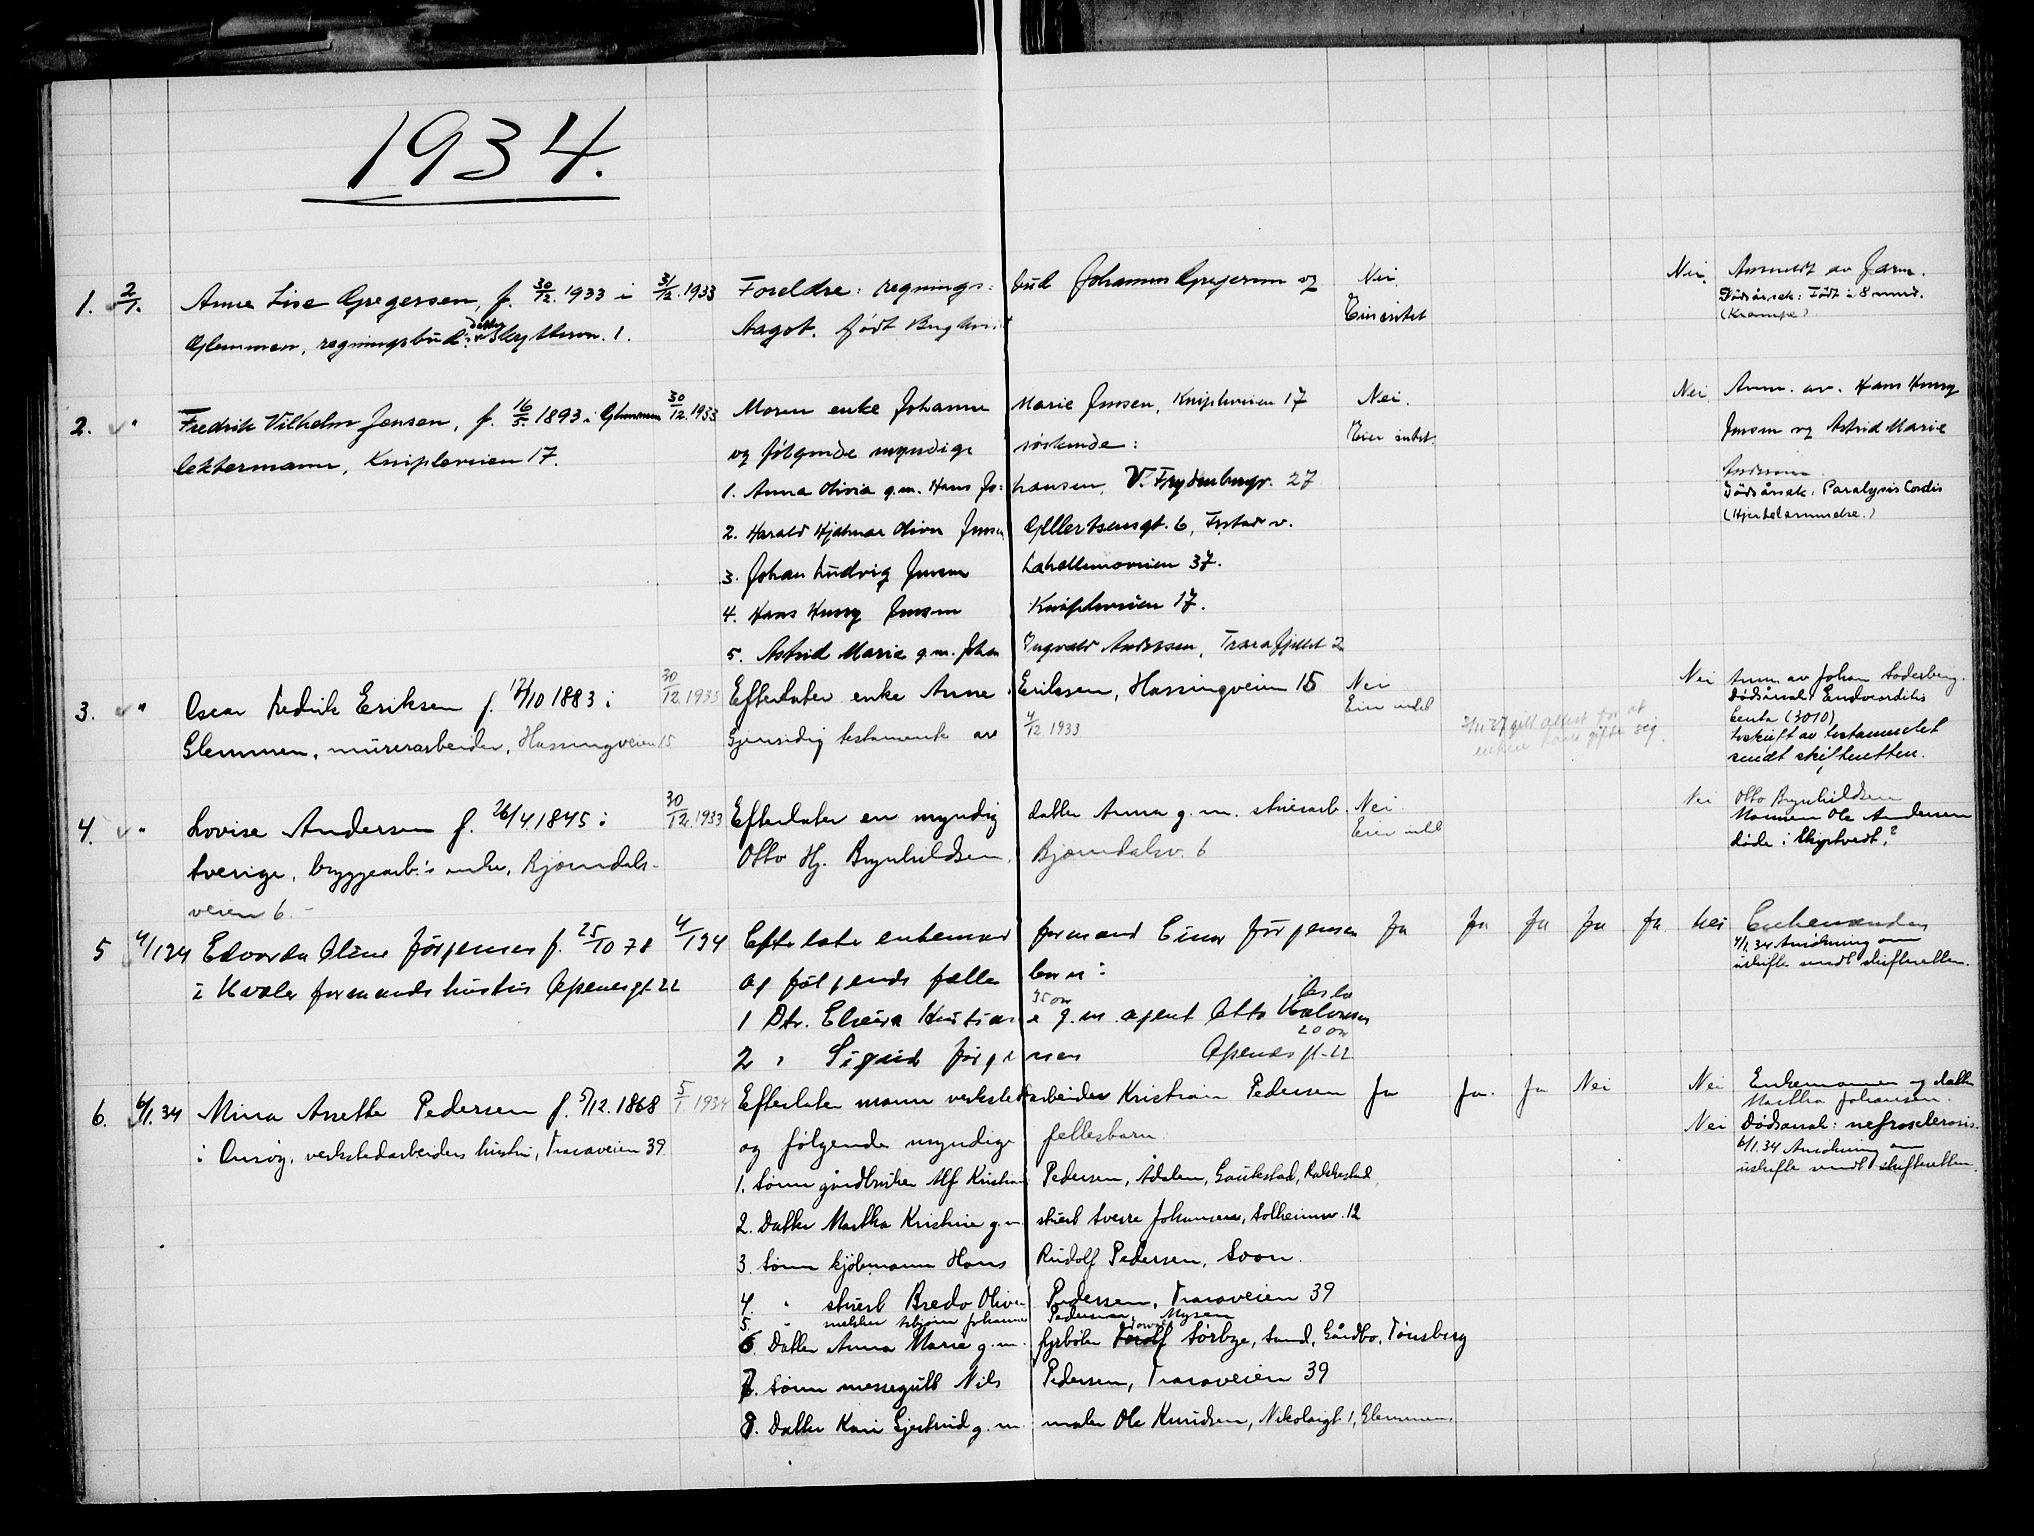 1934.
1. 2/1. Anne Lise Gregersen, f. 30/12. 1933 i 31/12. 1933 Foreldre: regnings- bud Johannes Gregersen og Nei. Nei. Anmeldt av farm.
Glemmen, regningsbud datter 1. Aagot, født Eier intet Dødsårsak: Født i 8 mnd.
(Krampe)
2. " Fredrik Vilhelm Jensen, f. 16/5. 1893 i Glemmen 30/12 1933 Moren enke Johanne Marie Jensen, Knipleveien 17 Nei. Nei Anm. av. Hans Henry
lektermann, Knipleveien 17. og følgende myndige søskende: Eier intet. Jensen og Astrid Marie
1. Anna Olivia g.m. Hans Jo- hansen, V. Frydenbergv. 27 Anderssen.
Dødsårsak: Paralysis Cordis
(Hjertelammelse.)
2. Harald Hjalmar Oliver Jensen Gellertsensgt. 6, Fr.stad v.
3. Johan Ludvig Jensen Lahellemoveien 37.
4. Hans Henry Jensen Knipleveien 17.
5. Astrid Marie g.m. Johan Ingvald Anderssen, Trarafjellet 2
3. " Oscar Fredrik Eriksen f. 17/10 1883 i 30/12 1933 Efterlater enke Anne Eriksen, Hassingveien 15 Nei Nei Anm. av Johan Soderberg.
Glemmen, murerarbeider, Hassingveien 15 Gjensidig testamente av 4/12 1933 Eier intet 37 gitt attest for at Dødsårsak: Endocarditis
enken kan gifte sig. lenta (3010)
Utskrift av testamentet
sendt skifteretten.
4. " Lovise Andersen f. 26/4 1845 i 30/12. 1933 Efterlater en myndig datter Anna g.m. stuerarb. Nei. Nei Otto Brynhildsen
Sverige, bryggearb.s enke, Bjørndals- Otto Hj. Brynhildsen, Bjørndalsv. 6 Eier intet Mannen Ole Andersen
veien 6. døde i Skjeltvedt?
5 4/1 34 Edvarda Oline Jørgensen f. 25/10 78 4/1 34 Efterlater enkemand formand Einar Jørgensen Ja Ja Ja Ja Ja Nei Enkemanden
i Hvaler formands hustru Apenesgt. 22 og følgende felles barn: 4/1.34 Ansøkning om
uskifte sendt skifteretten.
1 Dtr. Elvira Kristiane 35 år g.m. agent Otto Halvorsen Oslo
2 " Sigrid Jørgensen 20 år Apenes gt. 22
6. 6/1.34 Mina Anette Pedersen f. 5/12. 1868 5/1 1934 Efterlater mann verkstedarbeider Kristian Pedersen Ja Ja. Ja Nei Nei Enkemannen og datter
Martha Johansen.
i Onsøy, verkstedarbeiders hustru, Traraveien 39 og følgende myndige fellesbarn: Nei Dødsårsak: nefrosclerosis.
6/1.34 Ansøkning om
uskifte sendt skifteretten.
1. Sønn gårdbruker Alf Kristian Pedersen, Ådalen, Gautestad, Rakkestad.
2. Datter Martha Kristine g.m. stuert Sverre Johansen, Solheimv. 12
3. Sønn kjøbmann Hans Rudolf Pedersen, Soon.
4. " stuert Bredo Oliver Pedersen, Traraveien 39
5. " Johannes Pedersen, Mysen
6. Datter Anna Marie g.m. fyrbøter Sørbye, Sand, Gårdbo, Tønsberg
7. Sønn messegutt Nils Pedersen, Traraveien 39
8. Datter Kari Gjertrud g.m. maler Ole Knudsen, Nikolaigt. 1, Glemmen.